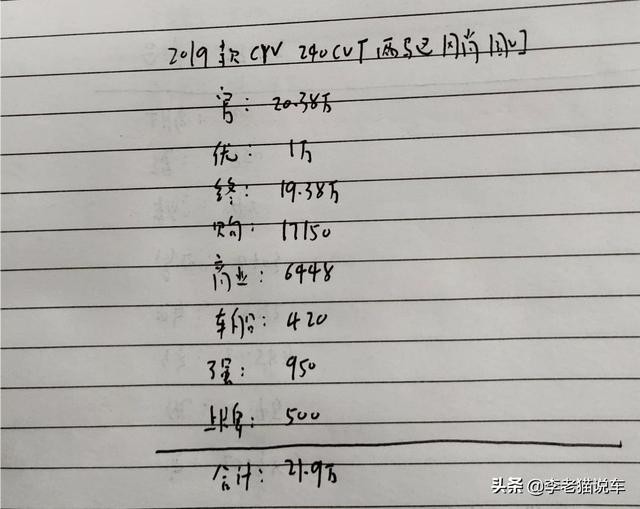 2019款 CRV 240CVT 两驱 风尚版
官: 20.38万
优: 1万
终: 19.38万
购: 17150
商业: 6448
车船: 420
强: 950
上牌: 500
合计: 21.9万
头条 @李老猫说车